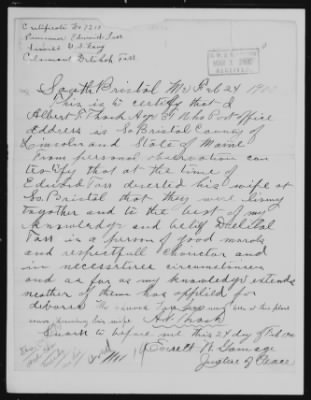 Certificate No 7211
Pensioner Edward Tarr
Service U.S. Navy
Claimant Delilah Tarr
MAR 1 1900
South Bristol Me Feb 24 1900
This is to certify that I
Albert Thork Age 51 Who Post office
address is So Bristol County of
Lincoln and State of Maine
From personal observation can
testify that at the time of
Edward Tarr deserted his wife at
So. Bristol that they were living
together and to the best of my
knowledge and belif Delilal
Tarr is a person of good morals
and respectfull charictor and
in necessitures circumstances
and as far as my knowledge extends
neather of them has applied for
devorse
Swarn to before me this 24 day of Feb 1900
Everett W. Gamage
Justice of Peace